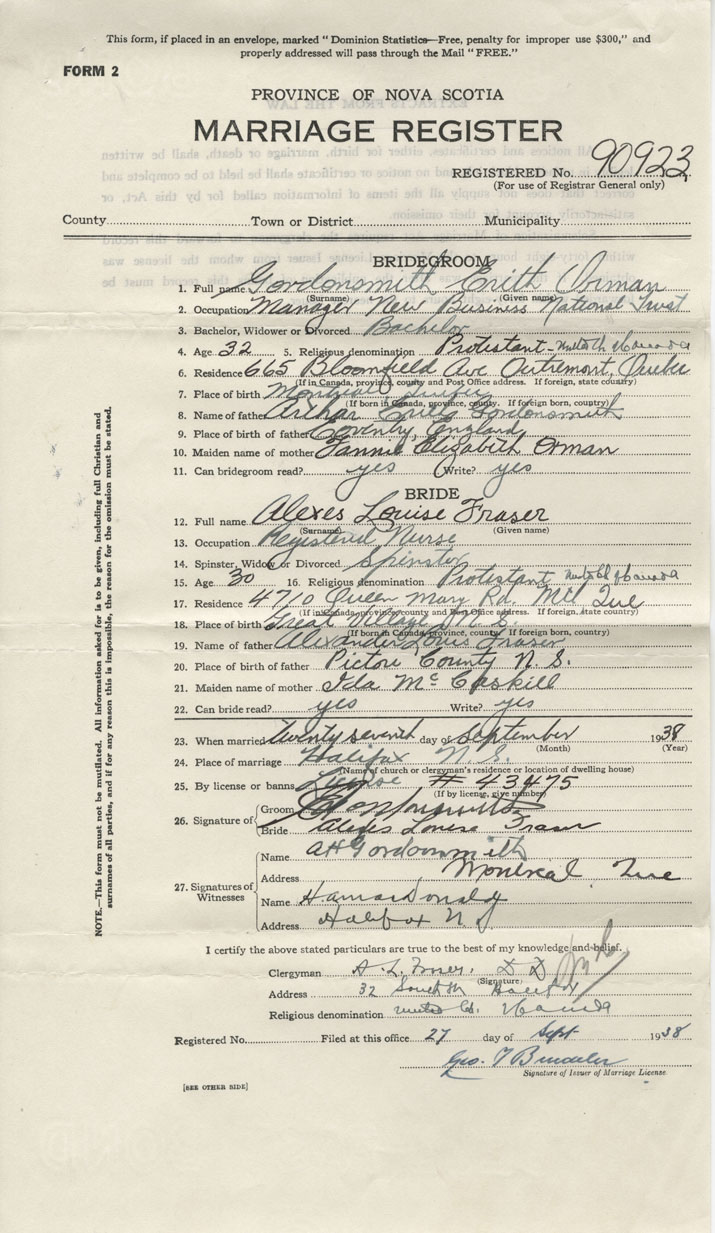 This form, if placed in an envelope, marked "Dominion Statistics—Free, penalty for improper use $300," and
properly addressed will pass through the Mail "FREE."
FORM 2
PROVINCE OF NOVA SCOTIA
MARRIAGE REGISTER
REGISTERED No. 90923
(For use of Registrar General only)
County Town or District Municipality
BRIDEGROOM
1. Full name Gordonsmith Erith Orman
(Surname) (Given name)
2. Occupation Manager New Business National Trust
3. Bachelor, Widower or Divorced Bachelor
4. Age 32 5. Religious denomination Protestant - United Ch of Canada
6. Residence 665 Bloomfield Ave Outremont, Quebec
(If in Canada, province, county and Post Office address. If foreign, state country)
7. Place of birth Montreal Quebec
(If born in Canada, province, county. If foreign born, country)
8. Name of father Arthur Erith Gordonsmith
9. Place of birth of father Coventry, England
10. Maiden name of mother Fannie Elizabeth Orman
11. Can bridegroom read? yes Write? yes
BRIDE
12. Full name Alexes Louise Fraser
(Surname) (Given name)
13. Occupation Registered Nurse
14. Spinster, Widow or Divorced Spinster
15. Age 30 16. Religious denomination Protestant United Ch of Canada
17. Residence 4710 Queen Mary Rd. Mtl Que
(If in Canada, province, county and Post Office address. If foreign, state country)
18. Place of birth Great Village N.S.
(If born in Canada, province, county. If foreign born, country)
19. Name of father Alexander Louis Fraser
20. Place of birth of father Pictou County N.S.
21. Maiden name of mother Ida McCaskill
22. Can bride read? yes Write? yes
23. When married twenty seventh day of September 1938
(Month) (Year)
24. Place of marriage Halifax N.S.
(Name of church or clergyman's residence or location of dwelling house)
25. By license or banns License # 43475
(If by license, give number)
26. Signature of
Groom
Bride Alexes Louise Fraser
27. Signatures of Witnesses
Name AH Gordonsmith
Address Montreal Que
Name H. MacDonald
Address Halifax N.S
I certify the above stated particulars are true to the best of my knowledge and belief.
Clergyman A. L. D D
(Signature)
Address 32 South Halifax
Religious denomination United Ch. Canada
Registered No. Filed at this office 27 day of Sept 1938
Geo. T
Signature of Issuer of Marriage License.
[SEE OTHER SIDE]
NOTE.—This form must not be mutilated. All information asked for is to be given, including full Christian and
surnames of all parties, and if for any reason this is impossible, the reason for the omission must be stated.